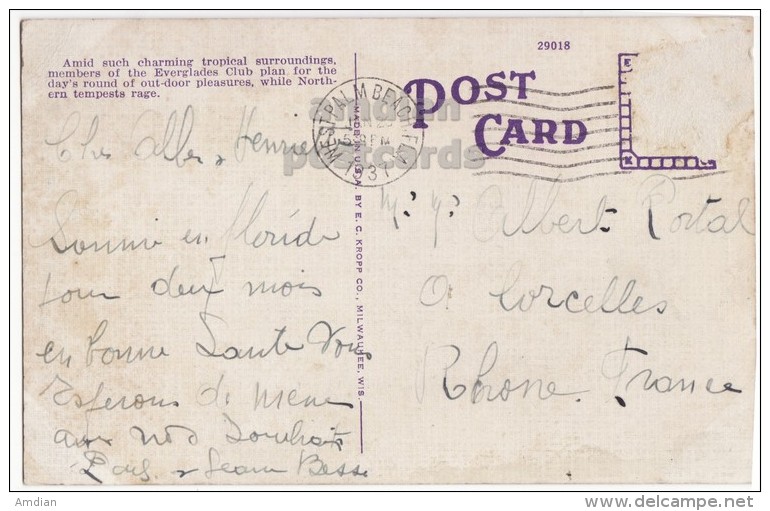 29018
Amid such charming tropical surroundings,
members of the Everglades Club plan for the
day's round of out-door pleasures, while North-
ern tempests rage.
POST
CARD
WEST PALM BEACH, FLA.
PM
1931
amdian
postcards
MADE IN U.S.A. BY E. C. KROPP CO., MILWAUKEE, WIS.
Cher Albert & Henriet
Somme en Floride
pour deux mois
en bonne Sante Vous
Esperons de meme
aux nos Souhaits
& Jean Besse
Mr. Albert Portal
a Corcelles
Rhone. France
Amdian
delcampe.net